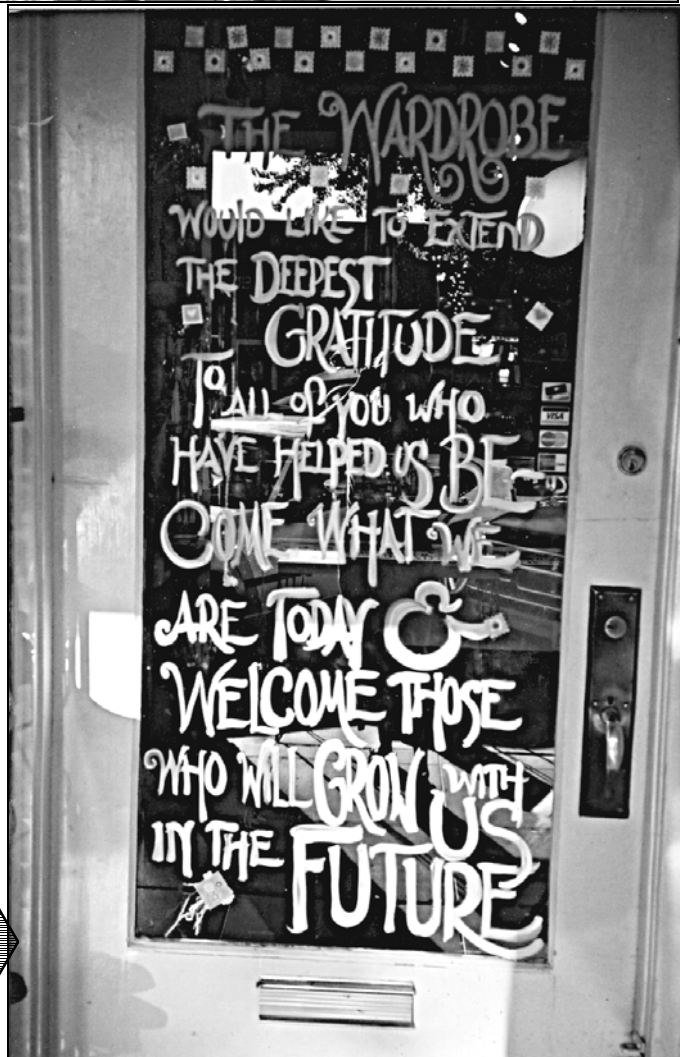 THE WARDROBE
WOULD LIKE TO EXTEND
THE DEEPEST
GRATITUDE
TO ALL OF YOU WHO
HAVE HELPED US BE-
COME WHAT WE
ARE TODAY &
WELCOME THOSE
WHO WILL GROW WITH
US
IN THE FUTURE
VISA